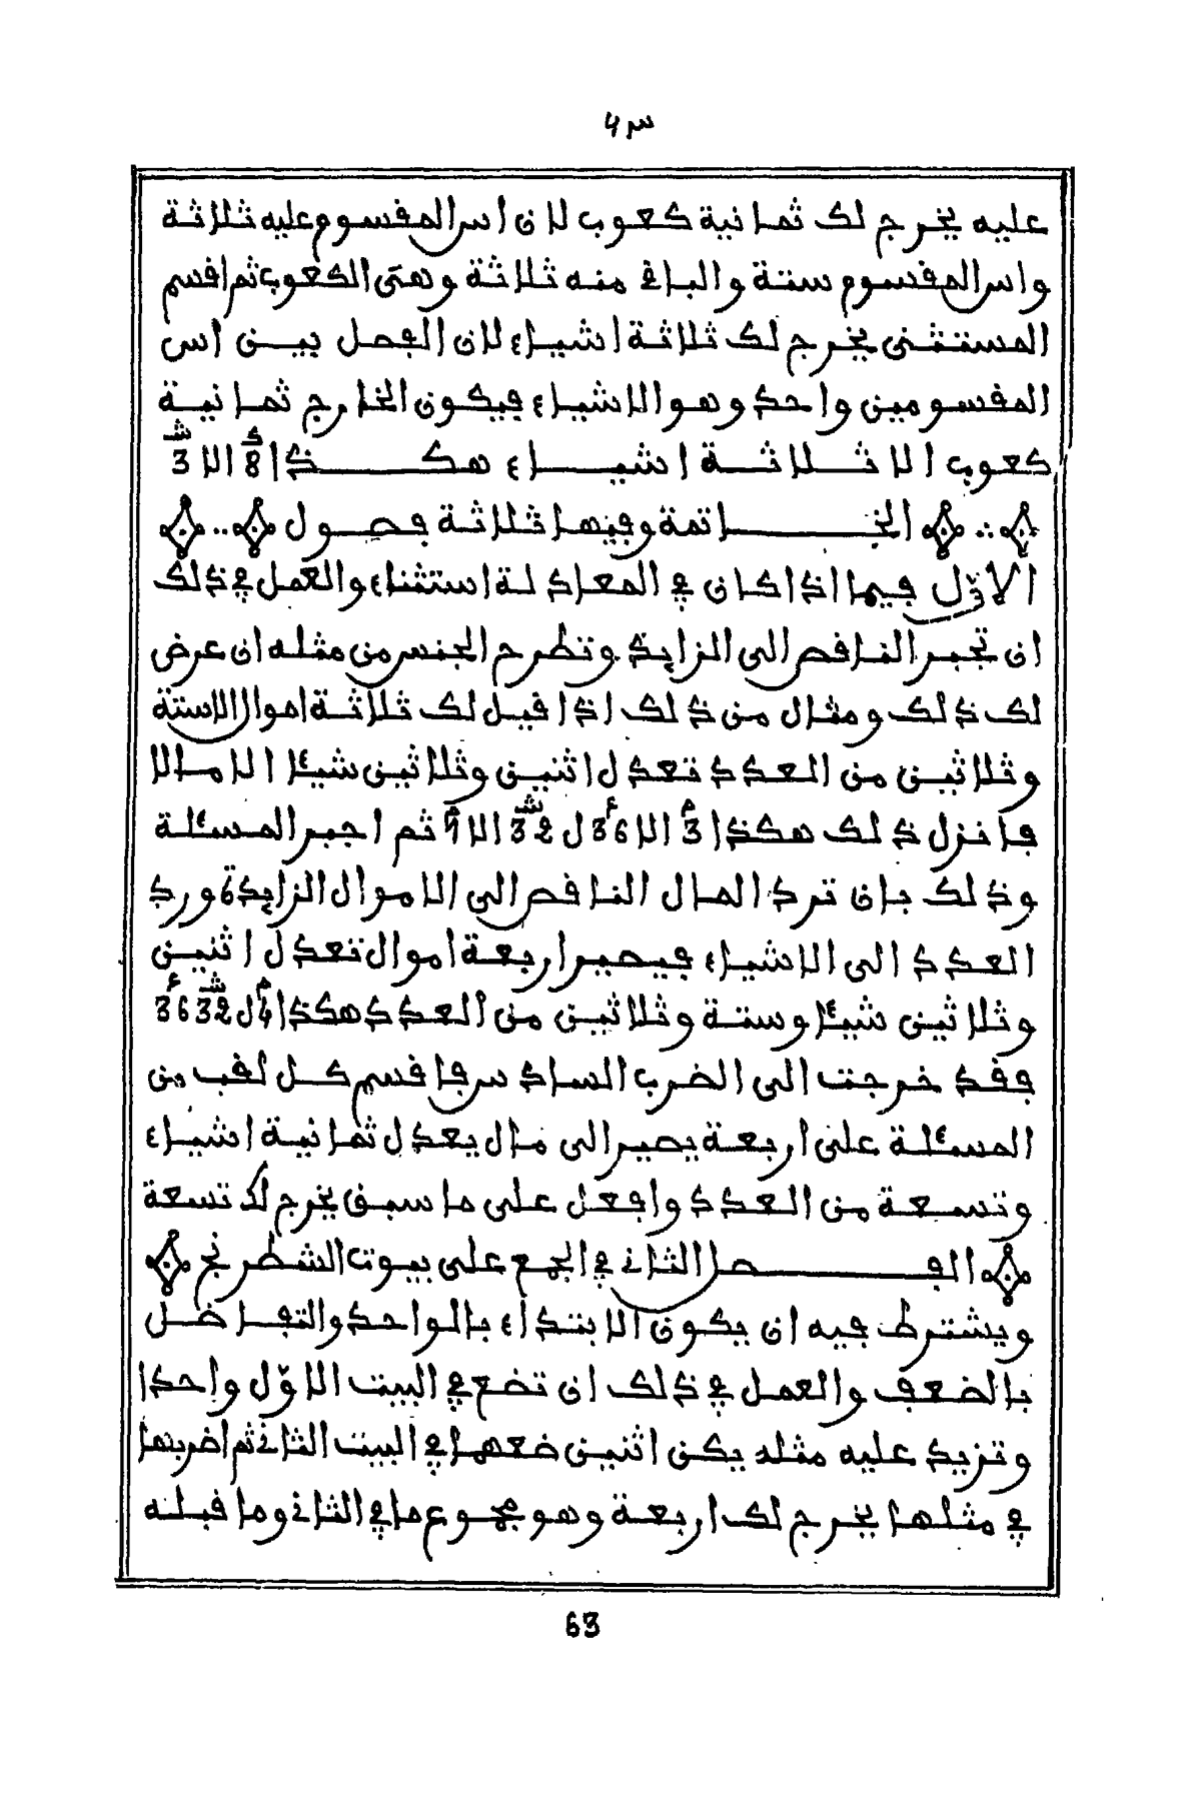 عليه يخرج لك ثمانية كعوب لان اس المقسوم عليه ثلاثة
واس المقسوم ستة والباقي منه ثلاثة وهى الكعوب ثم اقسم
المستثنى يخرج لك ثلاثة اشياء لان الفصل بين اس
المقسومين واحد وهو الاشياء فيكون الخارج ثمانية
كعوب الا ثلاثة اشياء هكذا 8 الا 3
الخاتمة وفيها ثلاثة فصول
الأوّل فيما اذا كان في المعادلة استثناء والعمل في ذلك
ان تجبر الناقص الى الزايد وتطرح الجنس من مثله ان عرض
لك ذلك ومثال من ذلك اذا قيل لك ثلاثة اموال الا ستة
وثلاثين من العدد تعدل اثنين وثلاثين شيئا الا مالا
فانزل ذلك هكذا 3 الا 36 ل 32 الا 1 ثم اجبر المسئلة
وذلك بان ترد المال الناقص الى الاموال الزايدة ورد
العدد الى الاشياء فيصير اربعة اموال تعدل اثنين
وثلاثين شيئا وستة وثلاثين من العدد هكذا 4 ل 32 36
فقد خرجت الى الضرب السادس فاقسم كل لقب من
المسئلة على اربعة يصير الى مال يعدل ثمانية اشياء
وتسعة من العدد وافعل على ما سبق يخرج لك تسعة
الفصل الثاني في الجمع على بيوت الشطرنج
ويشترط فيه ان يكون الابتداء بالواحد والتفاضل
بالضعف والعمل في ذلك ان تضع في البيت الاوّل واحدا
وتزيد عليه مثله يكن اثنين ضعهما في البيت الثاني ثم اضربهما
في مثلها يخرج لك اربعة وهو مجموع ما في الثاني وما قبله
63